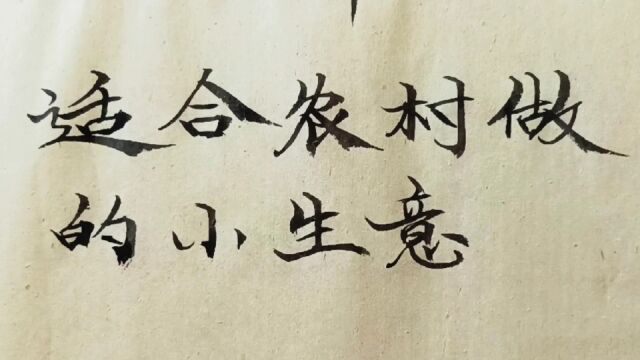 适合农村做
的小生意